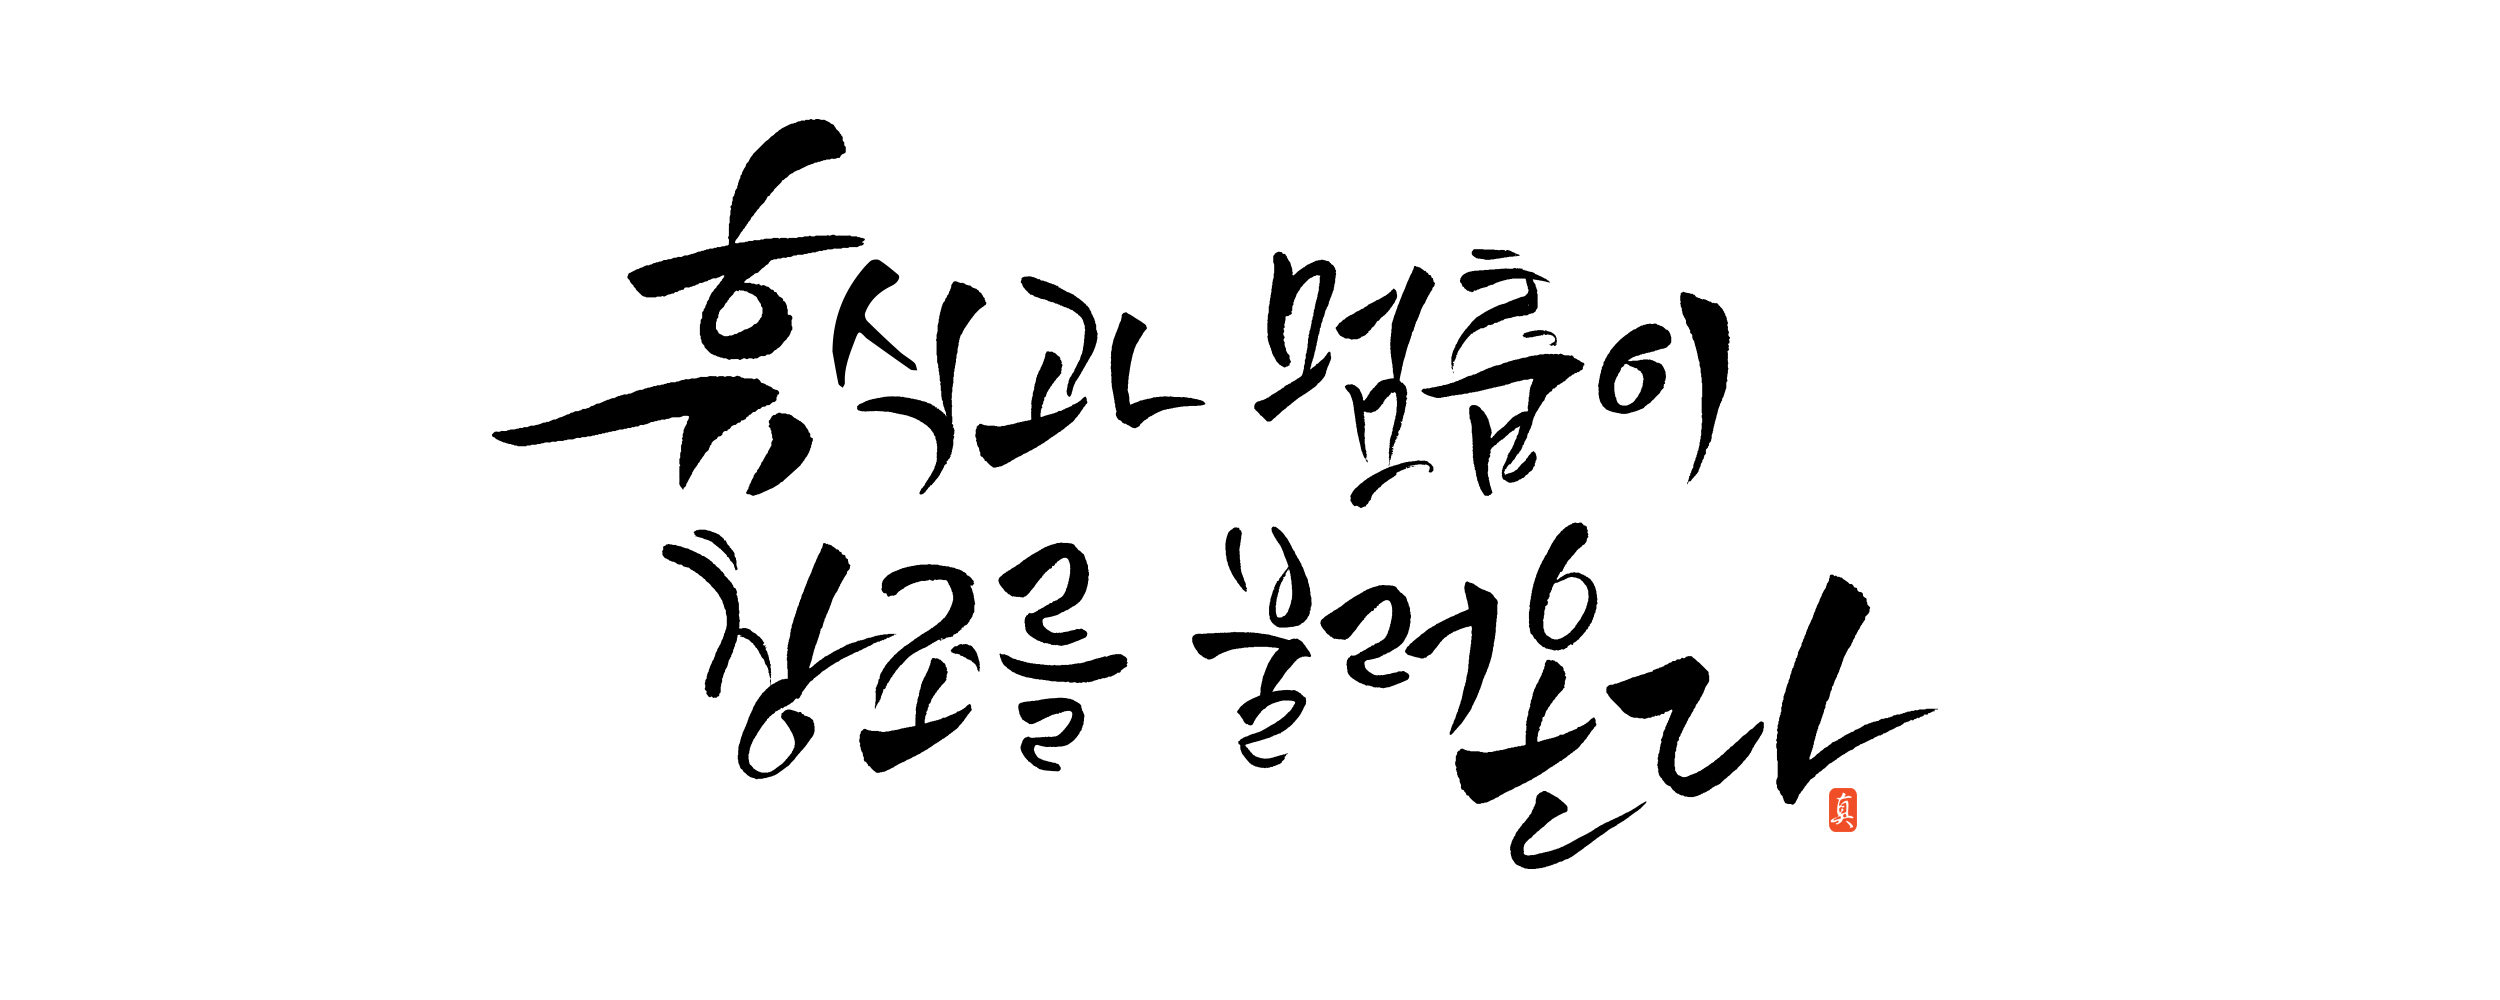 휴식과 멈춤이
창조를 불러온다